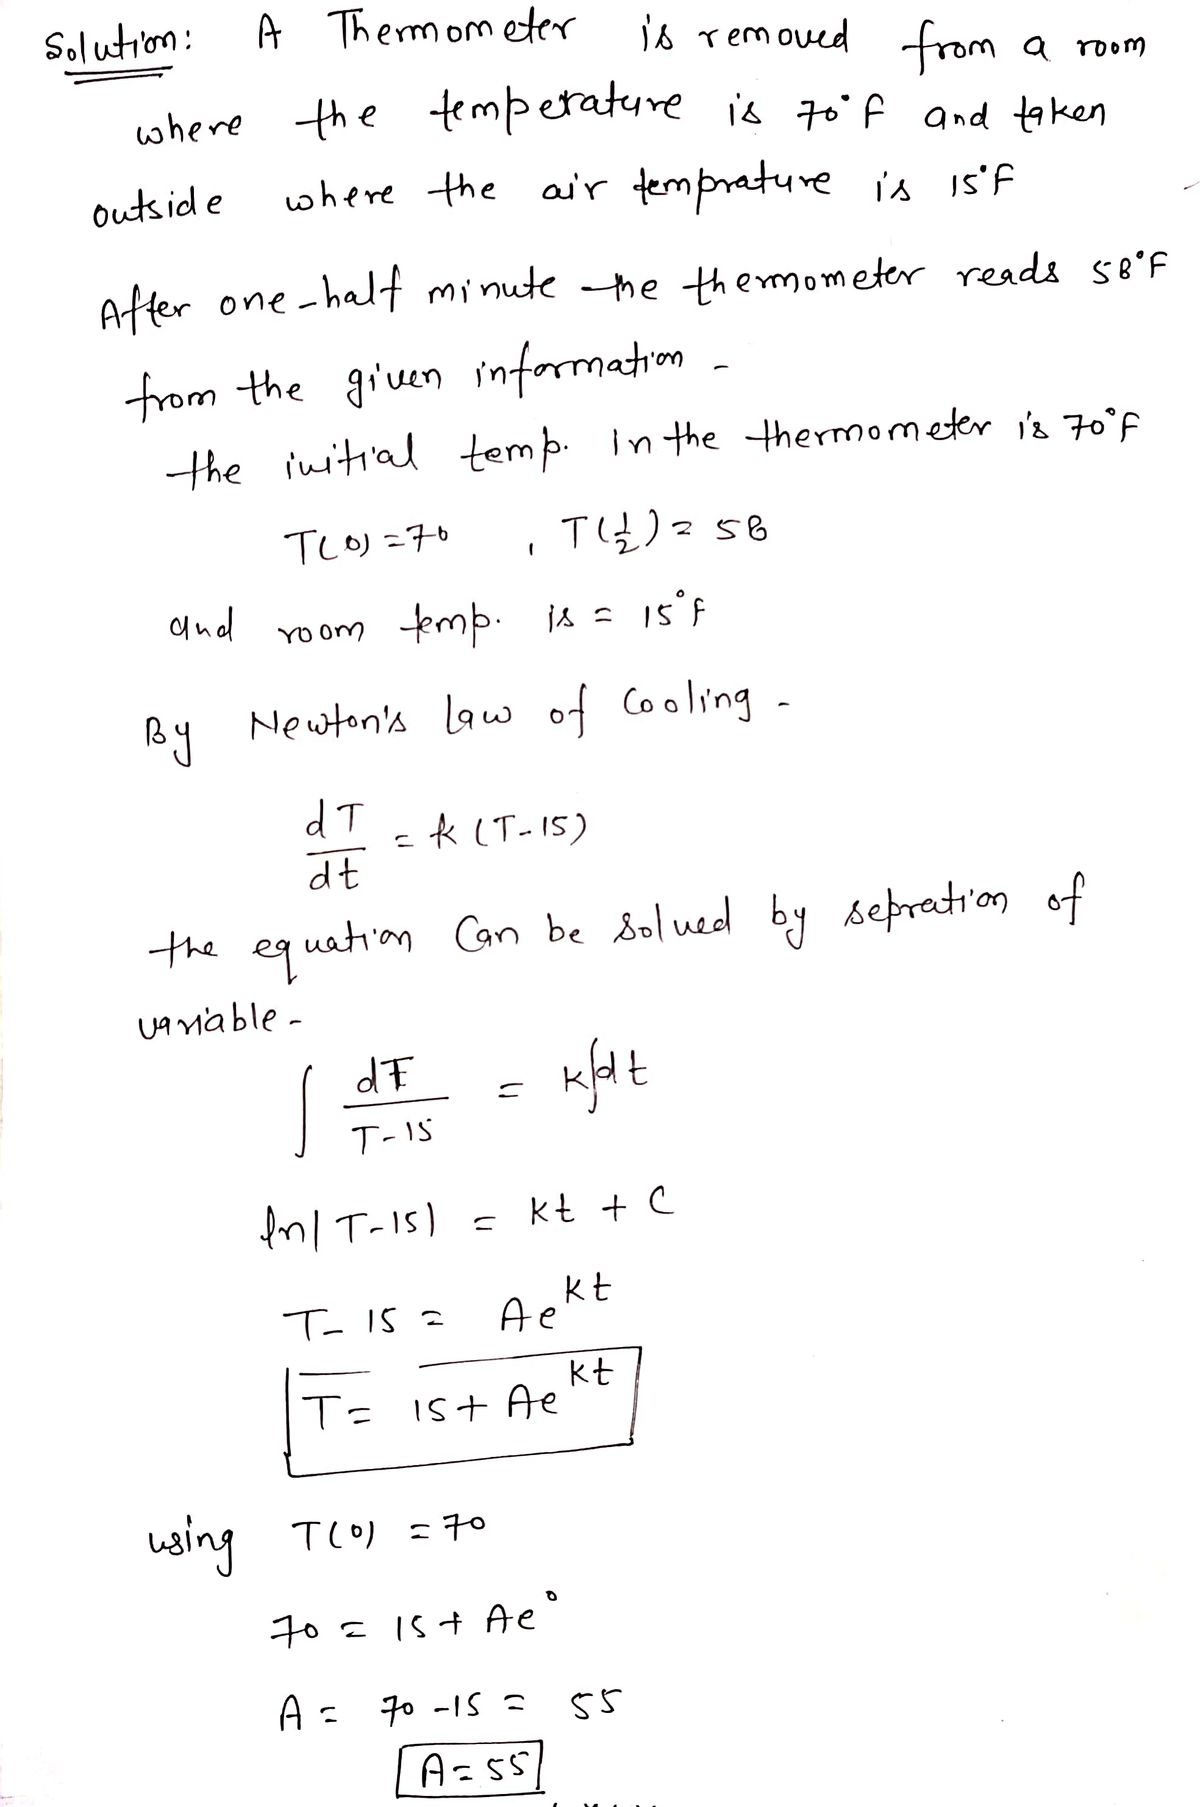 Solution: A Thermometer is removed from a room
where the temperature is 70°F and taken
outside where the air temprature is 15°F
After one-half minute the thermometer reads 58°F
from the given information -
the initial temp. in the thermometer is 70°F
T(0) = 70 , T(1/2) = 58
and room temp. is = 15°F
By Newton's law of Cooling -
dT/dt = k (T-15)
the equation Can be solved by sepration of
variable -
∫ dT/T-15 = k∫dt
ln|T-15| = kt + C
T- 15 = Ae^kt
T= 15+ Ae^kt
using T(0) = 70
70 = 15+ Ae°
A = 70 -15 = 55
A= 55